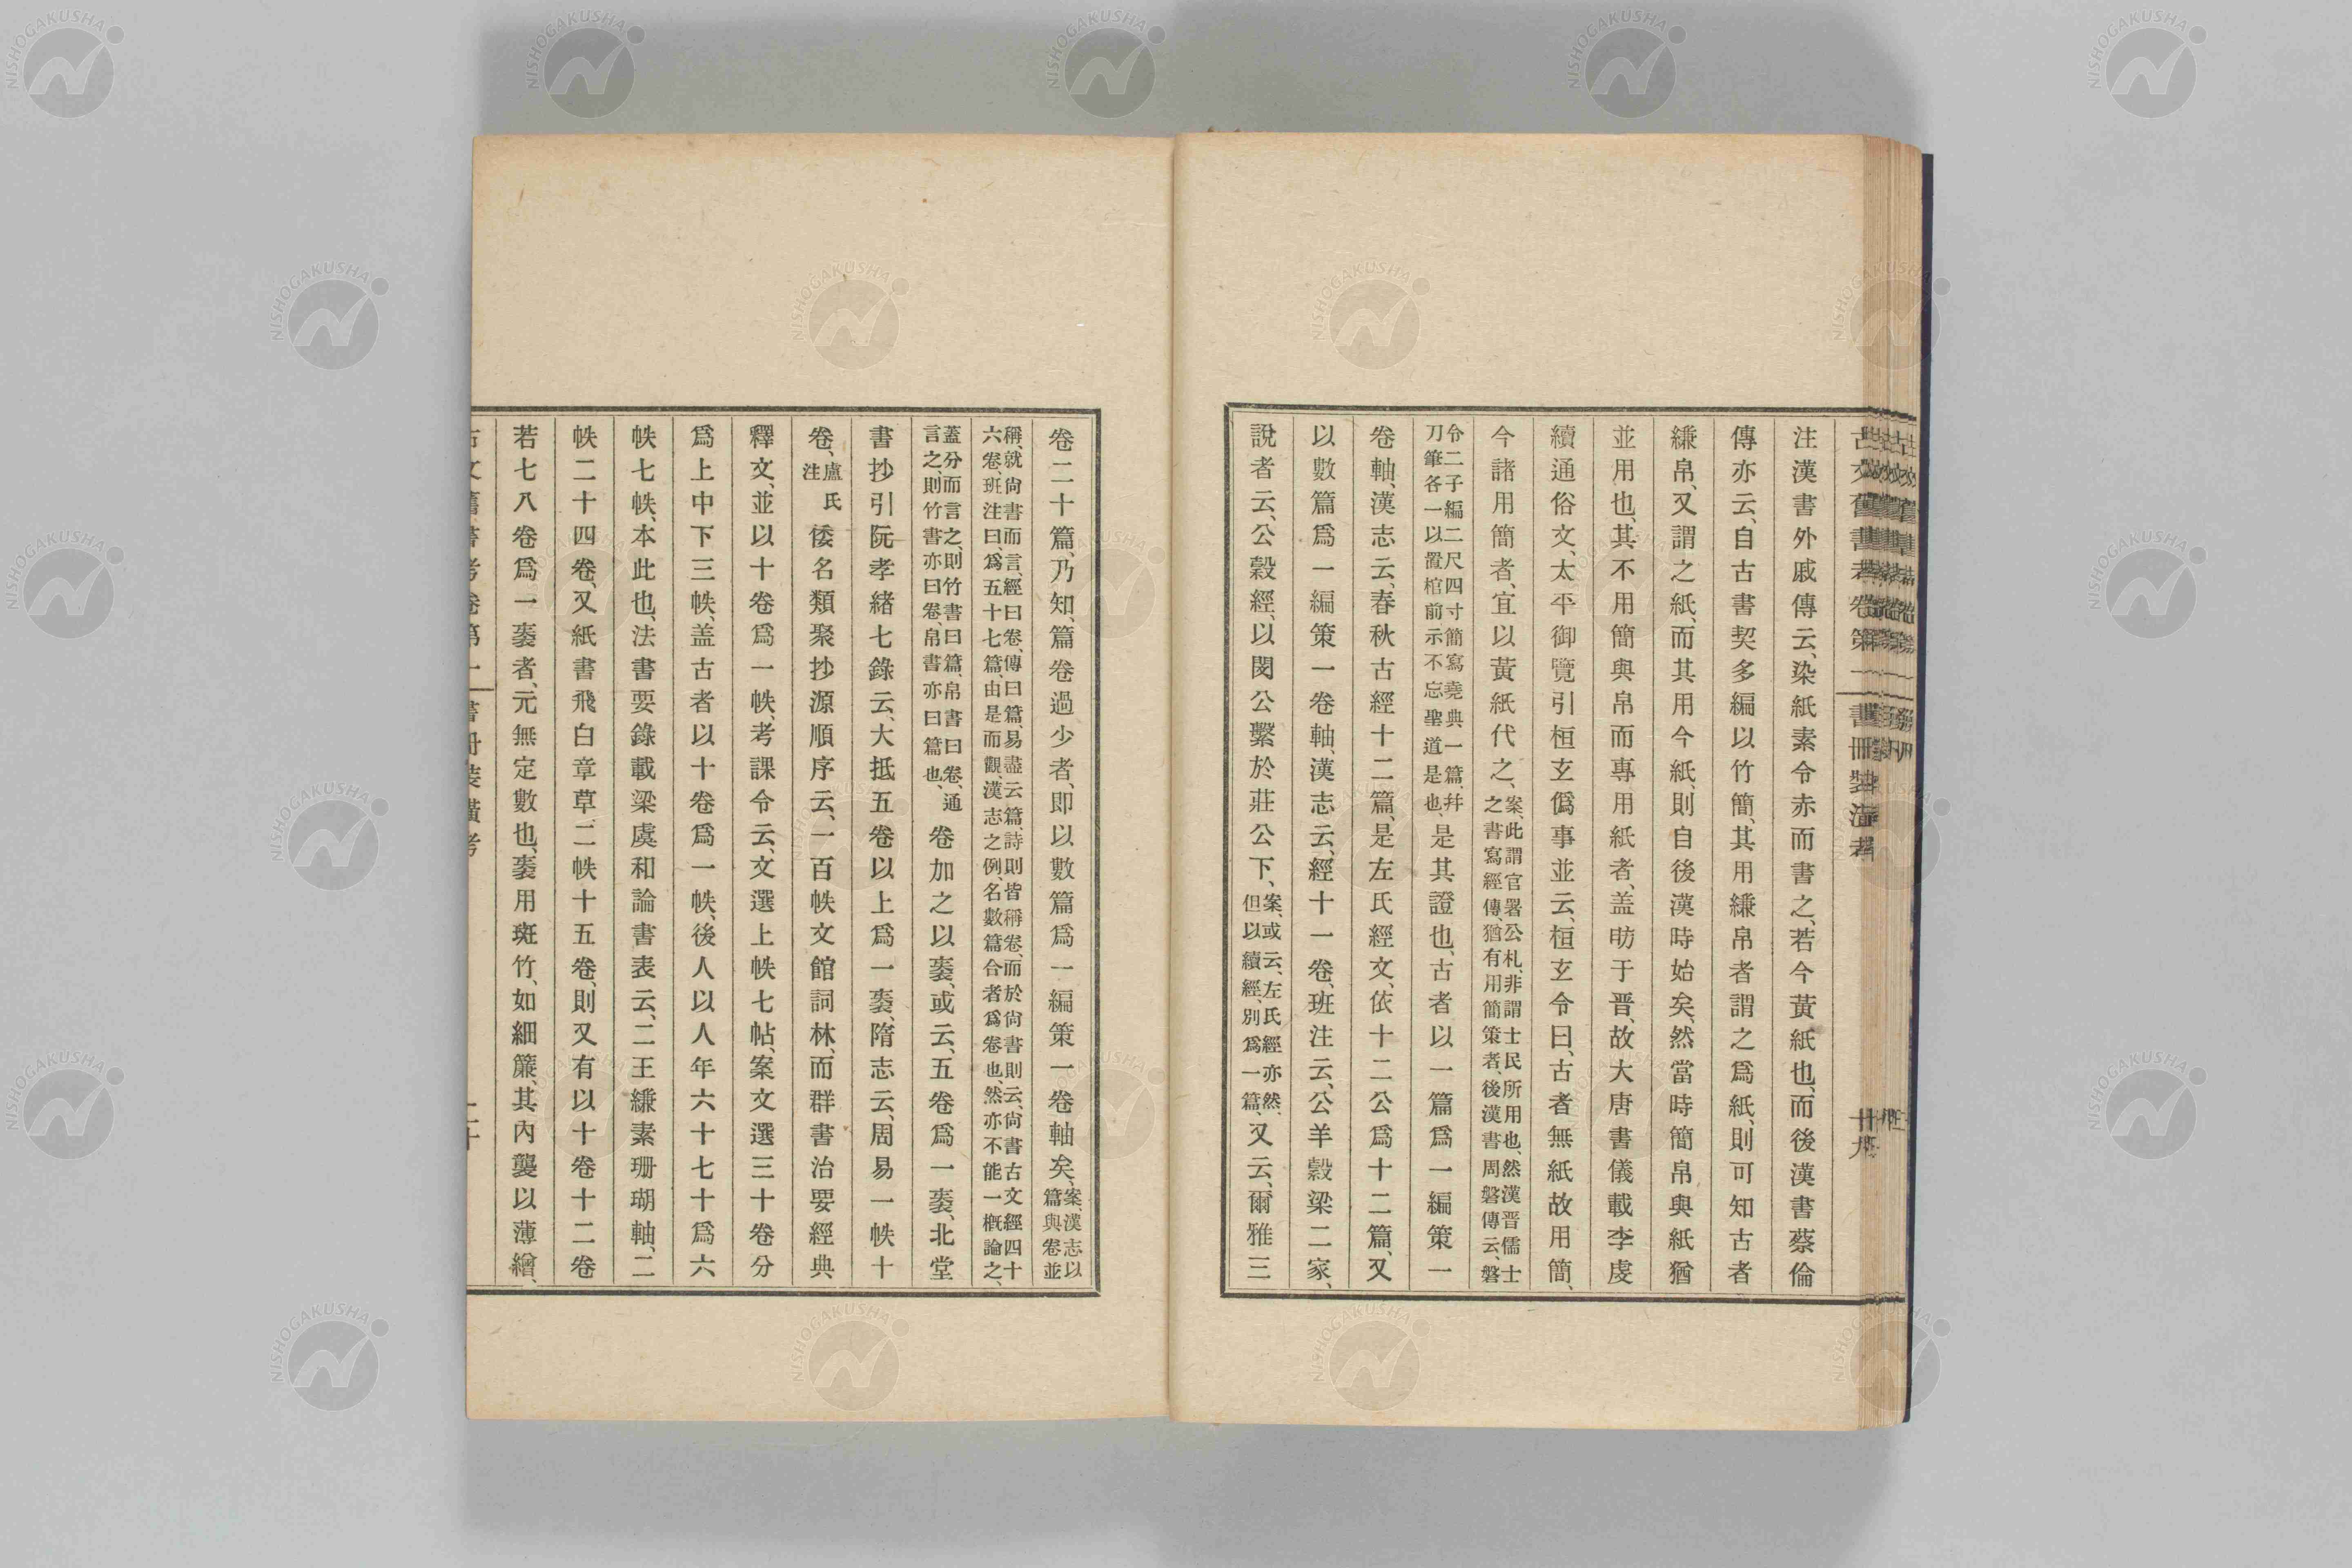 古文舊書考卷第一
書冊裝潢考
廿九
注漢書外戚傳云、染紙素令赤而書之、若今黃紙也、而後漢書蔡倫
傳亦云、自古書契多編以竹簡、其用縑帛者謂之爲紙、則可知古者
縑帛、又謂之紙、而其用今紙、則自後漢時始矣、然當時簡帛與紙猶
並用也、其不用簡與帛而專用紙者、盖昉于晋、故大唐書儀載李虔
續通俗文、太平御覽引桓玄僞事並云、桓玄令曰、古者無紙故用簡、
今諸用簡者、宜以黃紙代之、案、此謂官署公札、非謂士民所用也、然漢晋儒士
之書寫經傳、猶有用簡策者、後漢書周磐傳云、磐
令二子編二尺四寸簡寫堯典一篇、幷
刀筆各一以置棺前示不忘聖道是也、是其證也、古者以一篇爲一編策一
卷軸、漢志云、春秋古經十二篇、是左氏經文、依十二公爲十二篇、又
以數篇爲一編策一卷軸、漢志云、經十一卷、班注云、公羊穀梁二家、
說者云、公穀經、以閔公繫於莊公下、案、或云、左氏經亦然、
但以續經、別爲一篇、又云、爾雅三
卷二十篇、乃知、篇卷過少者、即以數篇爲一編策一卷軸矣、案、漢志以
篇與卷並
稱、就尙書而言、經曰卷、傳曰篇、易盡云篇、詩則皆稱卷、而於尙書則云、尙書古文經四十
六卷、班注曰、爲五十七篇、由是而觀、漢志之例、名數篇合者爲卷也、然亦不能一槪論之、
蓋分而言之、則竹書曰篇、帛書曰卷、通
言之、則竹書亦曰卷、帛書亦曰篇也、卷加之以袠、或云、五卷爲一袠、北堂
書抄引阮孝緒七錄云、大抵五卷以上爲一袠、隋志云、周易一帙十
卷、盧氏
注 倭名類聚抄源順序云、一百帙文館詞林、而群書治要經典
釋文、並以十卷爲一帙、考課令云、文選上帙七帖、案文選三十卷分
爲上中下三帙、盖古者以十卷爲一帙、後人以人年六十七十爲六
帙七帙、本此也、法書要錄載梁虞和論書表云、二王縑素珊瑚軸、二
帙二十四卷、又紙書飛白章草、二帙十五卷、則又有以十卷十二卷
若七八卷爲一袠者、元無定數也、袠用斑竹、如細簾、其內襲以薄繒、